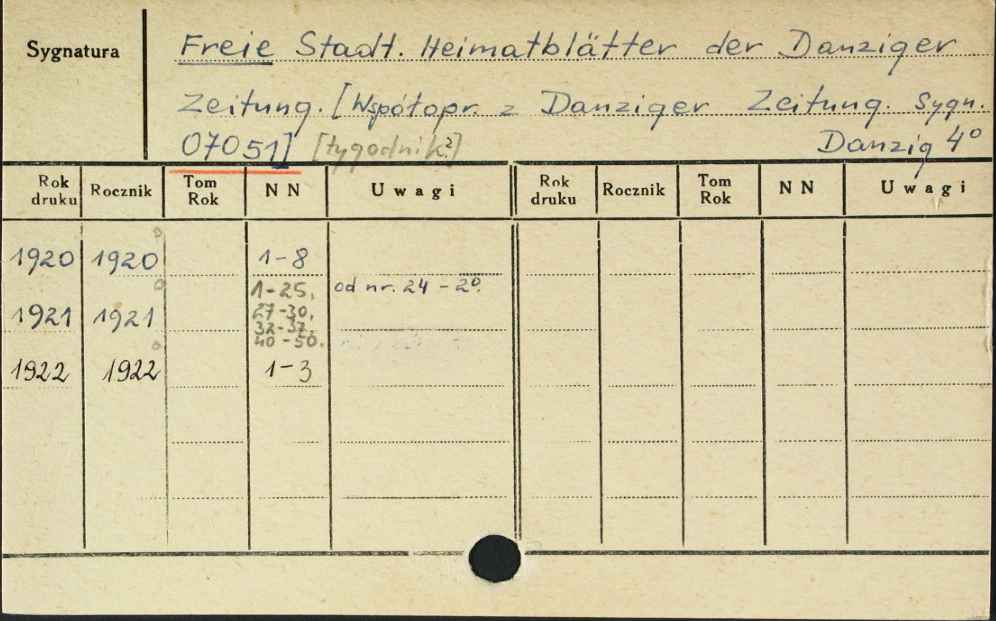 Sygnatura
Freie Stadt. Heimatblätter der Danziger
Zeitung. [Współopr. z Danziger Zeitung. Sygn.
07051] [tygodnik?] Danzig 4°
Rok druku Rocznik Tom Rok NN Uwagi Rok druku Rocznik Tom Rok NN Uwagi
1920 1920° 1-8
1-25, od nr. 24 - 2°.
1921 1921° 27-30,
32-37.
40-50.
1922 1922° 1-3